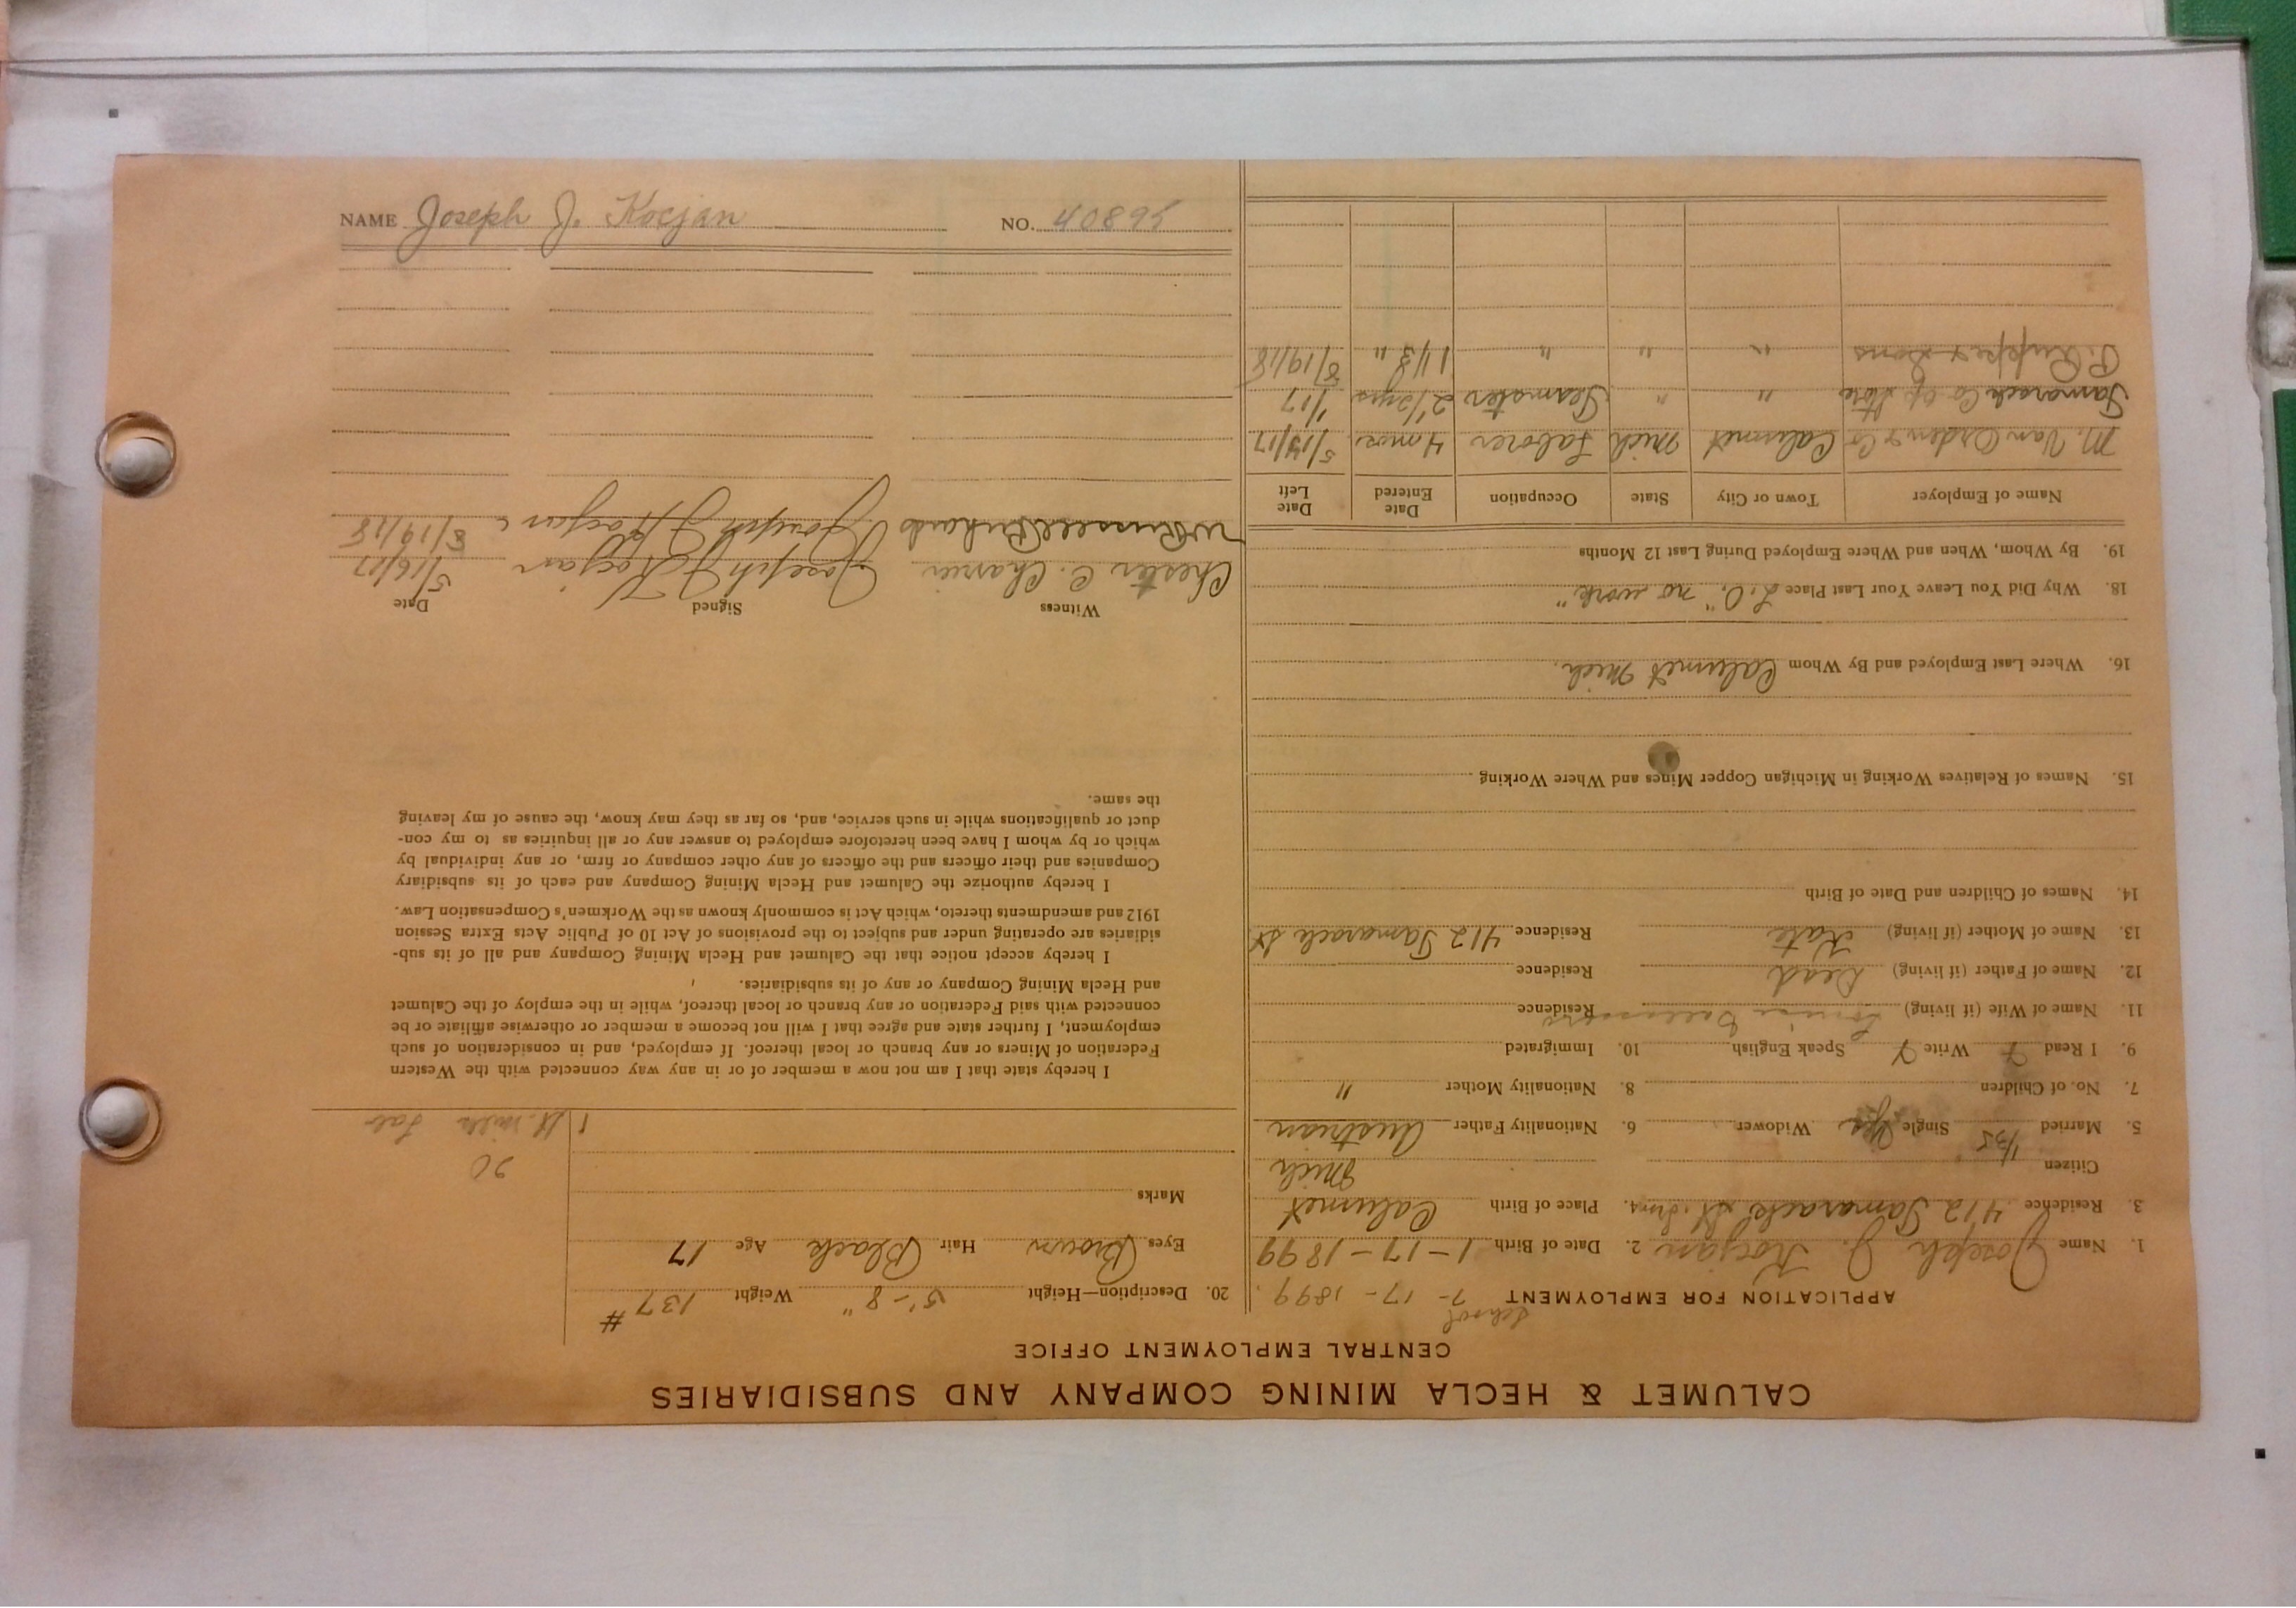 CALUMET & HECLA MINING COMPANY AND SUBSIDIARIES
CENTRAL EMPLOYMENT OFFICE
School
APPLICATION FOR EMPLOYMENT 7-17-1899
1. Name Joseph J. Kocjan 2. Date of Birth 1-17-1899
3. Residence 412 Tamarack St. 4. Place of Birth Calumet
Citizen Mich
5. Married 1/35 Single Yes Widower 6. Nationality Father Austrian
7. No. of Children 8. Nationality Mother "
9. I Read Y Write Y Speak English 10. Immigrated
11. Name of Wife (if living) Residence
12. Name of Father (if living) Dead Residence
13. Name of Mother (if living) Kate Residence 412 Tamarack St
14. Names of Children and Date of Birth
15. Names of Relatives Working in Michigan Copper Mines and Where Working
16. Where Last Employed and By Whom Calumet Mich.
18. Why Did You Leave Your Last Place L.O. "no work"
19. By Whom, When and Where Employed During Last 12 Months
Name of Employer Town or City State Occupation Date Entered Date Left
M. Van Orden & Co Calumet Mich Laborer 4 mos. 5/15/17
Tamarack Co op Store " " Teamster 2 1/2 yrs 1/17
P. Ruppe & Sons " " " 1 yr 3 " 8/19/18
20. Description—Height 5'-8" Weight 137 #
Eyes Brown Hair Black Age 17
Marks
20
St. mills Lab
I hereby state that I am not now a member of or in any way connected with the Western
Federation of Miners or any branch or local thereof. If employed, and in consideration of such
employment, I further state and agree that I will not become a member or otherwise affiliate or be
connected with said Federation or any branch or local thereof, while in the employ of the Calumet
and Hecla Mining Company or any of its subsidiaries.
I hereby accept notice that the Calumet and Hecla Mining Company and all of its sub-
sidiaries are operating under and subject to the provisions of Act 10 of Public Acts Extra Session
1912 and amendments thereto, which Act is commonly known as the Workmen's Compensation Law.
I hereby authorize the Calumet and Hecla Mining Company and each of its subsidiary
Companies and their officers and the officers of any other company or firm, or any individual by
which or by whom I have been heretofore employed to answer any or all inquiries as to my con-
duct or qualifications while in such service, and, so far as they may know, the cause of my leaving
the same.
Witness Signed Date
Chester C. Joseph J Kocjan 5/16/17
W Russell Richards Joseph J Kocjan 8/19/18
NAME Joseph J. Kocjan NO. 40895